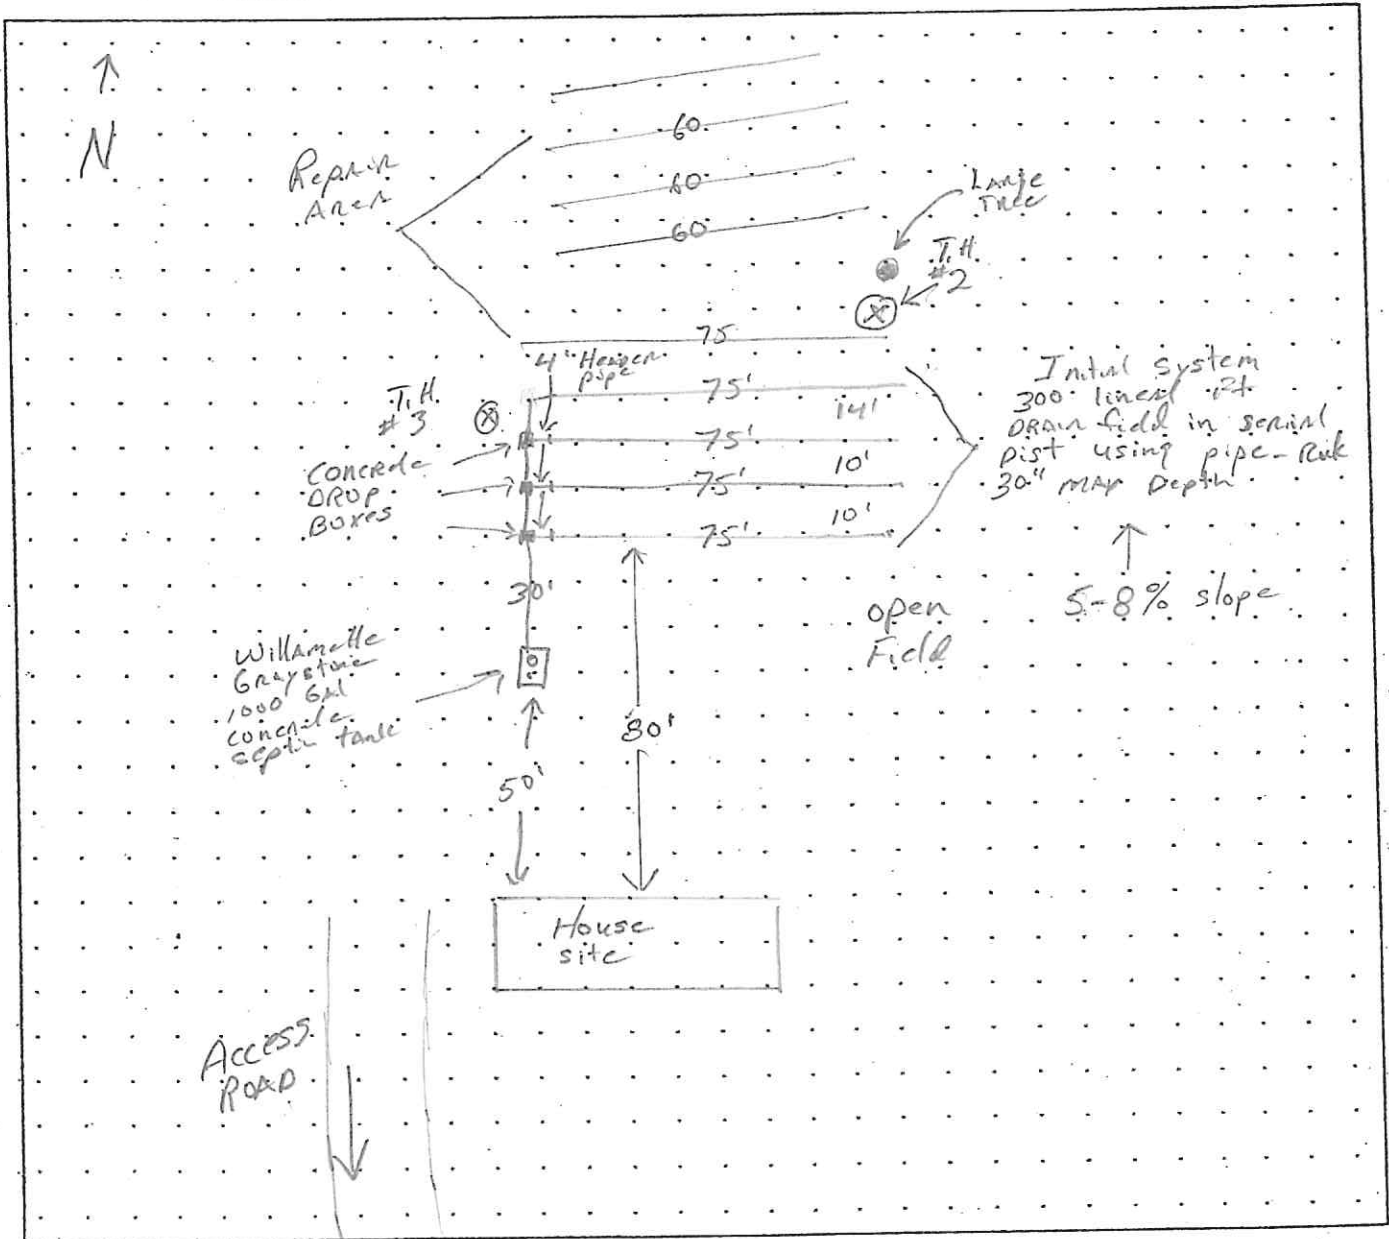 N
Repair
Area
60
60
60
Large
Tree
T.H.
#2
75
4" Header
pipe
75'
14'
T.H.
#3
75'
10'
Concrete
DROP
Boxes
75'
10'
75'
Initial System
300 lineal ft
DRAIN field in serial
Dist using pipe-Rock
30" MAX Depth
5-8% slope
30'
open
Field
Willamette
Graystone
1000 Gal
concrete
septic tank
80'
50'
House
site
Access
ROAD